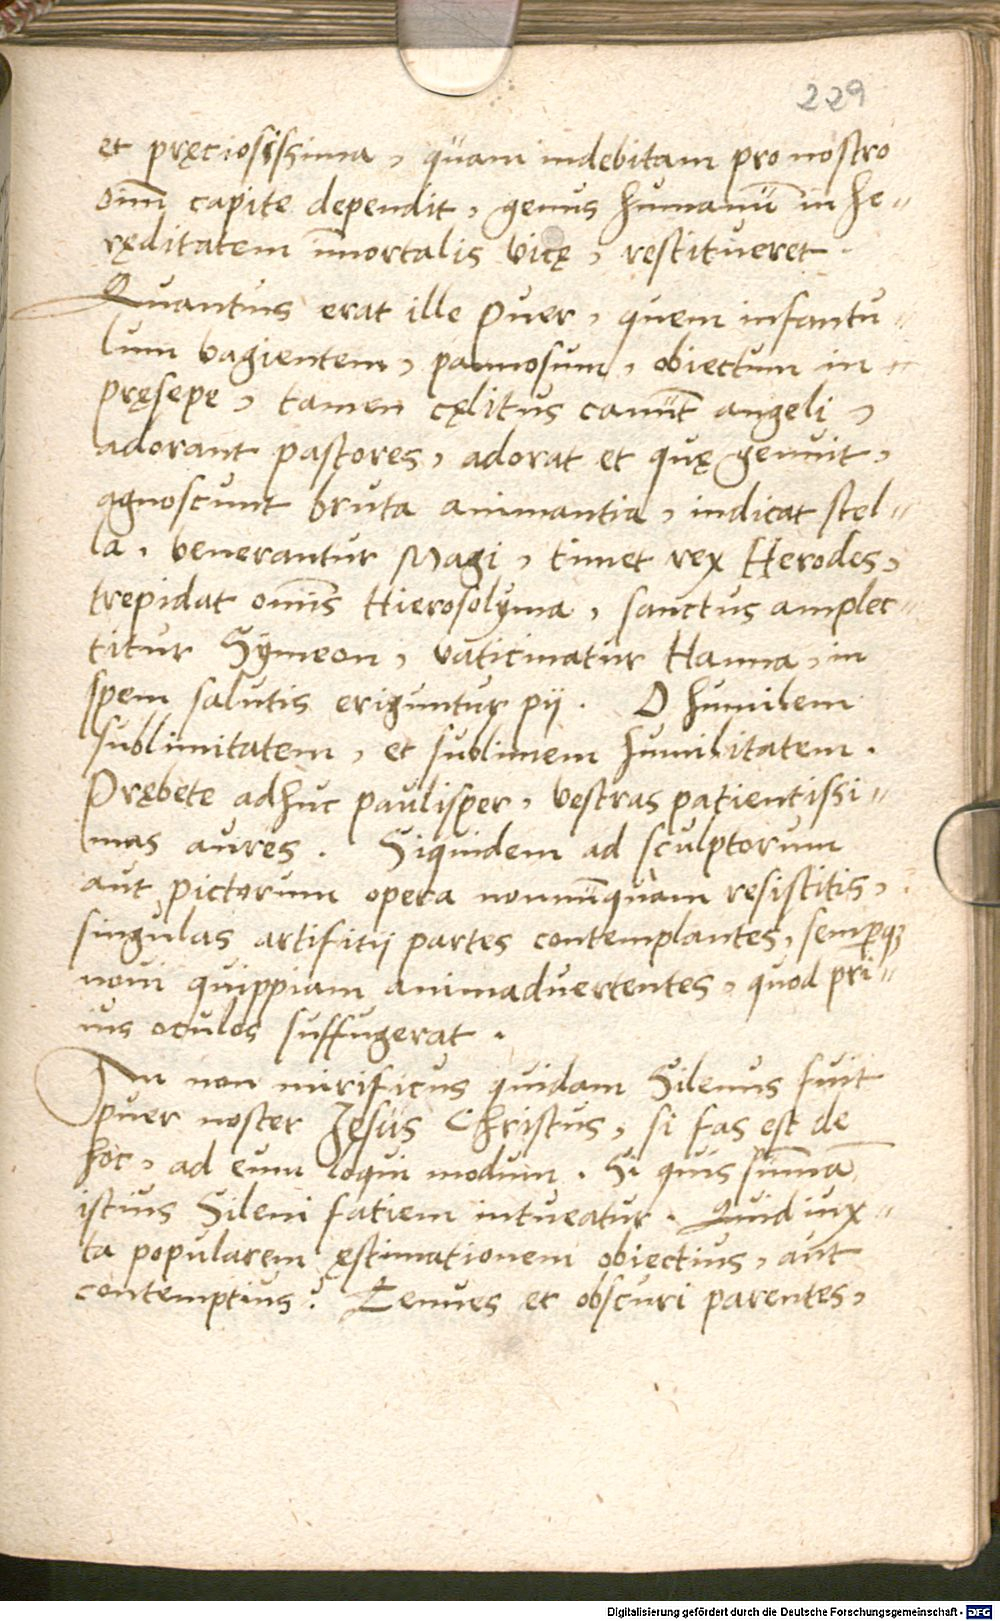 229
et pręciosissima, quam indebitam pro nostro
oīm capite dependit, genus humanū in he⸗
ręditatem īmortalis vitę, restitueret.
Quantus erat ille Puer, quem infantu⸗
lum vagientem, pannosum, obiectum in
pręsepe, tamen cęlitus canūt angeli,
adorant pastores, adorat et quę genuit,
agnoscunt bruta animantia, indicat stel⸗
la, venerantur Magi, timet rex Herodes,
trepidat omīs Hierosolyma, sanctus amplec⸗
titur Symeon, vaticinatur Hanna, in
spem salutis eriguntur pij. O humilem
sublimitatem, et sublimem humilitatem.
Prębete adhuc paulisper, vestras patientissi⸗
mas aures. Siquidem ad sculptorum
aut pictorum opera nonnūquam resistitis,
singulas artifitij partes contemplantes, semꝑqꝫ
noui quippiam animaduertentes, quod pri⸗
us oculos suffugerat.
An non mirificus quidam Silenus fuit
puer noster Jesus Christus, si fas est de
hoc, ad eum loqui modum. Si quis sūmā
istius Sileni fatiem intueatur. Quid iux⸗
ta popularem ęstimationem obiectius, aut
contemptius? Tenues et obscuri parentes,
Digitalisierung gefördert durch die Deutsche Forschungsgemeinschaft - DFG